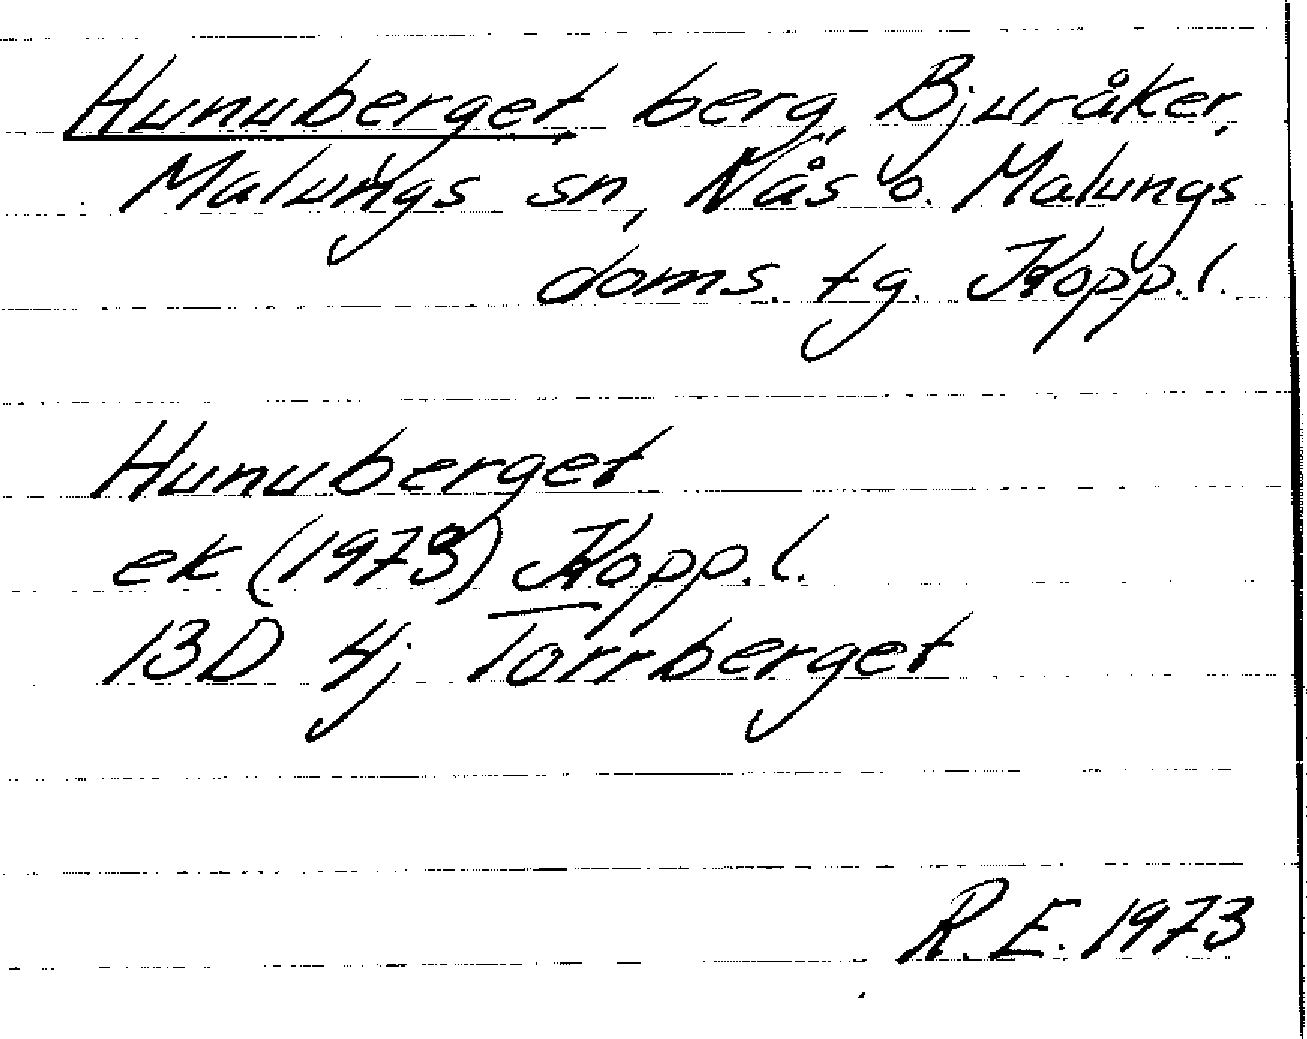 Hunuberget, berg, Bjuråker,
Malungs sn, Nås o. Malungs
doms. tg. Kopp. l.
Hunuberget
ek (1973) Kopp. l.
13D 4j Torrberget
R.E. 1973